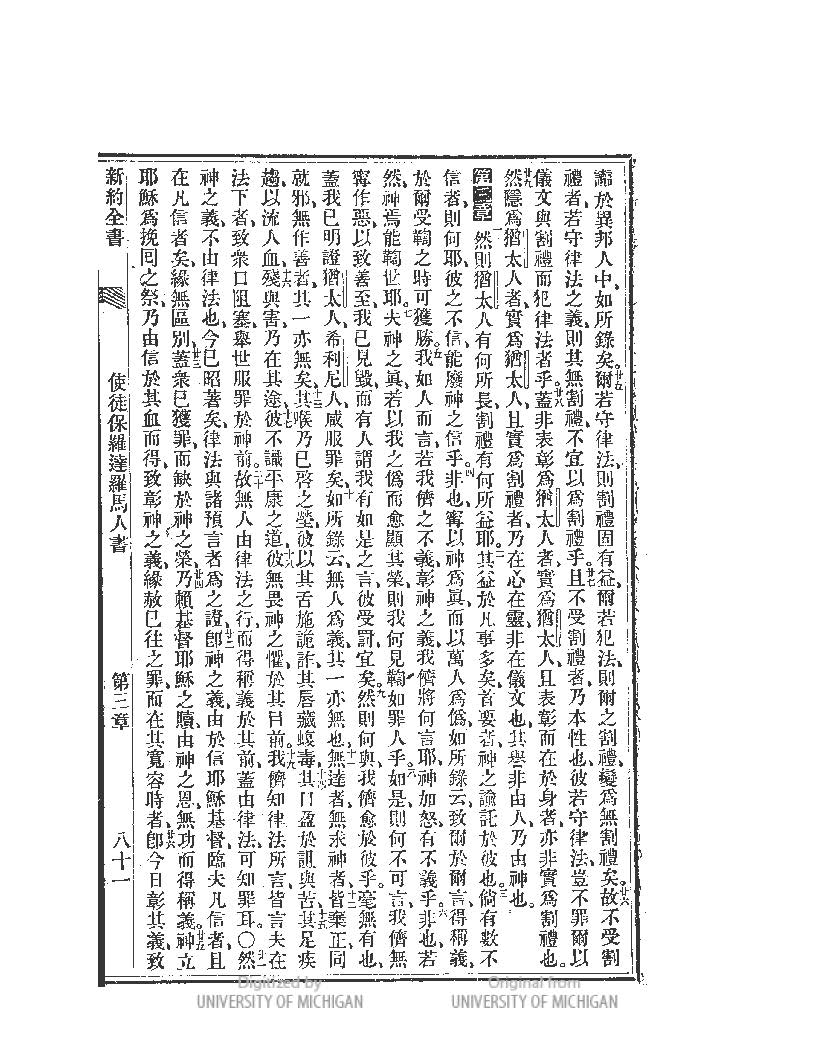 謗於異邦人中、如所錄矣。廿五爾若守律法、則割禮固有益、爾若犯法、則爾之割禮、變爲無割禮矣。廿六故不受割
禮者、若守律法之義、則其無割禮、不宜以爲割禮乎。廿七且不受割禮者乃本性也、彼若守律法、豈不罪爾以
儀文與割禮而犯律法者乎。廿八蓋非表彰爲猶太人者、實爲猶太人、且表彰而在於身者、亦非實爲割禮也。
廿九然隱爲猶太人者、實爲猶太人、且實爲割禮者、乃在心在靈、非在儀文也、其譽非由人、乃由神也。
第三章 一然則猶太人有何所長、割禮有何所益耶。二其益於凡事多矣、首要者、神之諭託於彼也。三倘有數不
信者、則何耶、彼之不信、能廢神之信乎。四非也、寧以神爲眞、而以萬人爲僞、如所錄云、致爾於爾言、得稱義、
於爾受鞫之時可獲勝。五我如人而言、若我儕之不義、彰神之義、我儕將何言耶、神加怒、有不義乎。六非也、若
然、神焉能鞫世耶。七夫神之眞、若以我之僞而愈顯其榮、則我何見鞫如罪人乎。八如是、則何不可言、我儕無
寧作惡、以致善至、我已見毀、而有人謂我有如是之言、彼受罰、宜矣。九然則何與、我儕愈於彼乎、毫無有也、
蓋我已明證猶太人、希利尼人、咸服罪矣。十如所錄云、無人爲義、其一亦無也、十一無達者、無求神者、十二皆棄正同
就邪、無作善者、其一亦無矣、十三其喉乃已啓之塋、彼以其舌施詭詐、其唇藏蝮毒、十四其口盈於詛與苦、十五其足疾
趨以流人血、十六殘與害、乃在其途、十七彼不識平康之道、十八彼無畏神之懼、於其目前。十九我儕知律法所言、皆言夫在
法下者、致衆口阻塞、舉世服罪於神前。二十故無人由律法之行、而得稱義於其前、蓋由律法、可知罪耳。〇廿一然
神之義、不由律法也、今已昭著矣、律法與諸預言者爲之證、廿二卽神之義、由於信耶穌基督、臨夫凡信者、且
在凡信者矣、緣無區別、廿三蓋衆已獲罪、而缺於神之榮、廿四乃賴基督耶穌之贖、由神之恩、無功而得稱義。廿五神立
耶穌爲挽回之祭、乃由信於其血而得、致彰神之義、緣赦已往之罪、而在其寬容時者、廿六卽今日彰其義、致
新約全書 使徒保羅達羅馬人書 第三章 八十一
Digitized by
UNIVERSITY OF MICHIGAN
Original from
UNIVERSITY OF MICHIGAN